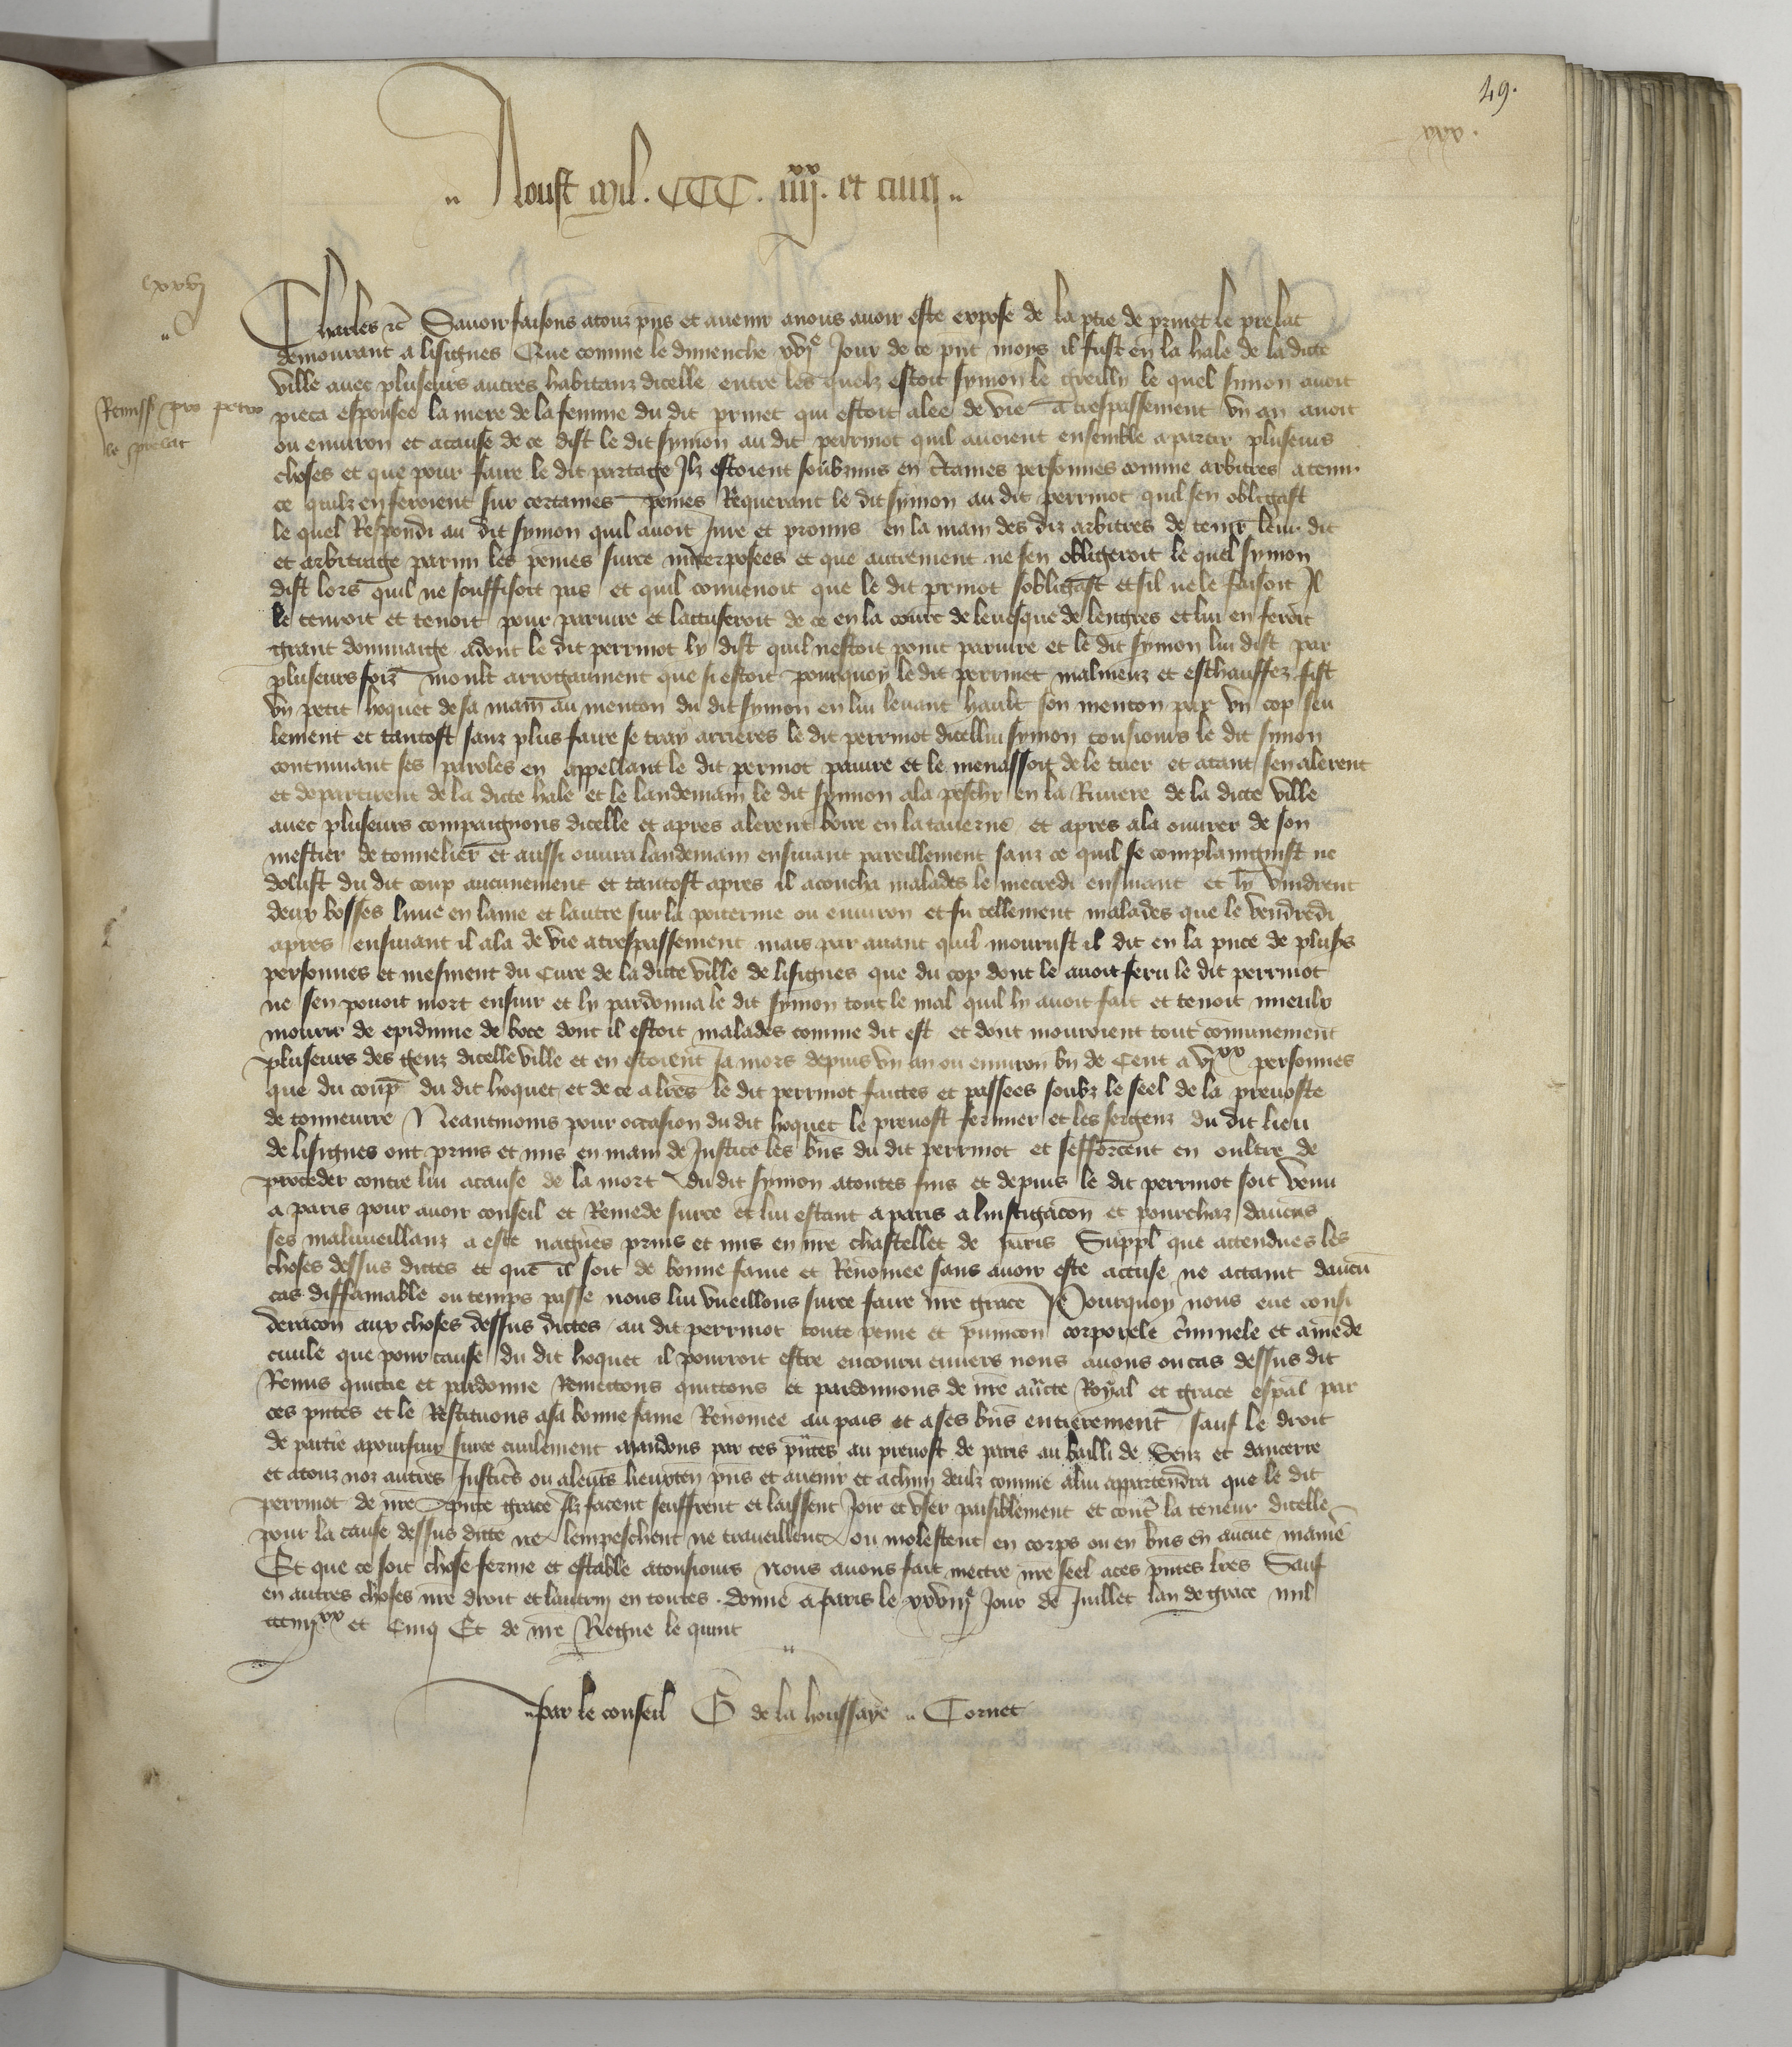 49.
xxx.
Aoust mil. CCC. iiiixx. et cinq
lxxvj
Charles etc Savoir faisons a touz pns et avenir a nous avoir este expose de la ptie de prinet le prelat
demourant a lisignes Que comme le dimenche xvje Jour de ce pnt moys il fust en la hale de la dicte
ville avec pluseurs autres habitanz dicelle entre les quelz estoit symon le le quel simon avoit
Remissio pro petro
le prelat
pieca espousee la mere de la femme du dit prinet qui estoit alee de vie a trespassement un an avoit
ou environ et a cause de ce dist le dit symon au dit perrinot quil avoient ensemble a partir pluseurs
choses et que pour faire le dit partage Ilz estoient soubzmis en ctaines personnes comme arbitres a tenir
ce quilz en feroient sur certaines peines Requerant le dit symon au dit perrinot quil sen obligast
le quel Respondi au dit symon quil avoit Jure et promis en la main des diz arbitres de tenir leur dit
et arbitrage parmi les peines surce interposees et que autrement ne sen obligeroit le quel symon
dist lors quil ne souffisoit pas et quil convenoit que le dit prinot sobligast et sil ne le faisoit Il
le tenroit et tenoit pour pariure et laccuseroit de ce en la court de levesque de lengres et lui en feroit
grant dommaige adont le dit perrinot ly dist quil nestoit point pariure et le dit symon lui dist par
pluseurs foiz moult arrogaument que si estoit pourquoy le dit perrinet malmeuz et eschauffez fist
un petit hoquet de sa main au menton du dit symon en lui levant hault son menton par un cop seu
lement et tantost sanz plus faire se tray arrieres le dit perrinot dicellui symon tousiours le dit simon
continuant ses paroles en appellant le dit perrinot paiure et le menassoit de le tuer et atant sen alerent
et departirent de la dicte hale et le landemain le dit symon ala peschr en la Riviere de la dicte ville
avec pluseurs compaignons dicelle et apres alerent boire en la taverne et apres ala ouvrer de son
mestier de tonnelier et aussi ouvra landemain ensuivant pareillement sanz ce quil se complaingnist ne
dolust du dit coup aucunement et tantost apres il acoucha malades le mecredi ensuivant et ly vindrent
deux bosses lune en laine et lautre sur la poiterine ou environ et fu tellement malades que le vendredi
apres ensuivant il ala de vie a trespassement mais par avant quil mourust il dit en la pnce de plusrs
personnes et mesment du Cure de la dicte ville de lisignes que du cop dont le avoit feru le dit perrinot
ne sen povoit mort ensuir et ly pardonna le dit symon tout le mal quil ly avoit fait et tenoit mieulx
mourir de epidimie de boce dont il estoit malades comme dit est et dont mouroient tout communement
pluseurs des genz dicelle ville et en estoient Ja mors depuis un an ou environ bn de Cent a vjxx personnes
que du coup du dit hoquet et de ce a lres le dit perrinot faictes et passees soubz le seel de la prevoste
de tonneurre Neantmoins pour occasion du dit hoquet le prevost fermier et les sergenz du dit lieu
de lisignes ont prins et mis en main de Justice les bns du dit perrinot et sefforcent en oultre de
proceder contre lui a cause de la mort du dit symon a toutes fins et depuis le dit perrinot soit venu
a paris pour avoir conseil et Remede surce et lui estant a paris a linstigacon et pourchaz daucuns
ses malvueillanz a este nagueres prins et mis en nre chastellet de paris Suppl que attendues les
choses dessus dictes et que il soit de bonne fame et Renomee sans avoir este accuse ne actaint daucun
cas diffamable ou temps passe nous lui vueillons surce faire nre grace Pourquoy nous eue consi
deracon aux choses dessus dictes au dit perrinot toute peine et punicon corporele criminele et amede
civile que pour cause du dit hoquet il pourroit estre encouru envers nous avons ou cas dessus dit
Remis quictie et pardonne Remettons quittons et pardonnons de nre aucte Royal et grace espal par
ces pntes et le Restituons a sa bonne fame Renomee au pais et a ses bns entierement sauf le droit
de partie a poursuir surce civilement Mandons par ces pntes au prevost de paris au bailli de Senz et daucerre
et a touz noz autres Justiciers ou a leurs lieuxten pns et avenir et a chun deulz comme a lui appartendra que le dit
perrinot de nre pnte grace Ilz facent seuffrent et laissent Joir et user paisiblement et contre la teneur dicelle
pour la cause dessus dicte ne lempeschent ne traveillent ou molestent en corps ou en bns en aucune maniere
Et que ce soit chose ferme et estable a tousiours Nous avons fait mectre nre seel a ces pntes lres Sauf
en autres choses nre droit et lautruy en toutes. donne a Paris le xxviije Jour de Juillet lan de grace mil
ccciiijxx et Cinq Et de nre Regne le quint
par le conseil G de la houssaye Cornet